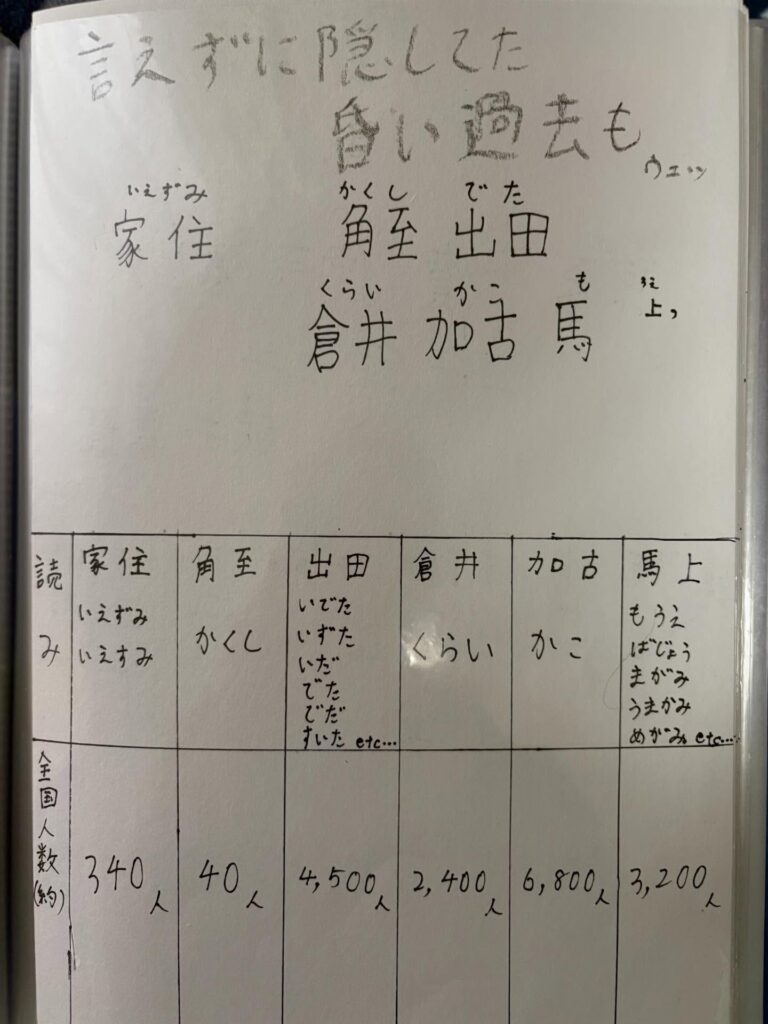 言えずに隠してた
昏い過去も
ウェッ
いえずみ かくし でた
家住 角至 出田
くらい かこ も うえ
倉井 加古 馬 上っ
読み 家住 角至 出田 倉井 加古 馬上
いえずみ
いえすみ
かくし
いでた
いずた
いだ
でた
でだ
すいた etc…
くらい
かこ
もうえ
ばじょう
まがみ
うまかみ
めがみ etc…
全国人数(約) 340人 40人 4,500人 2,400人 6,800人 3,200人